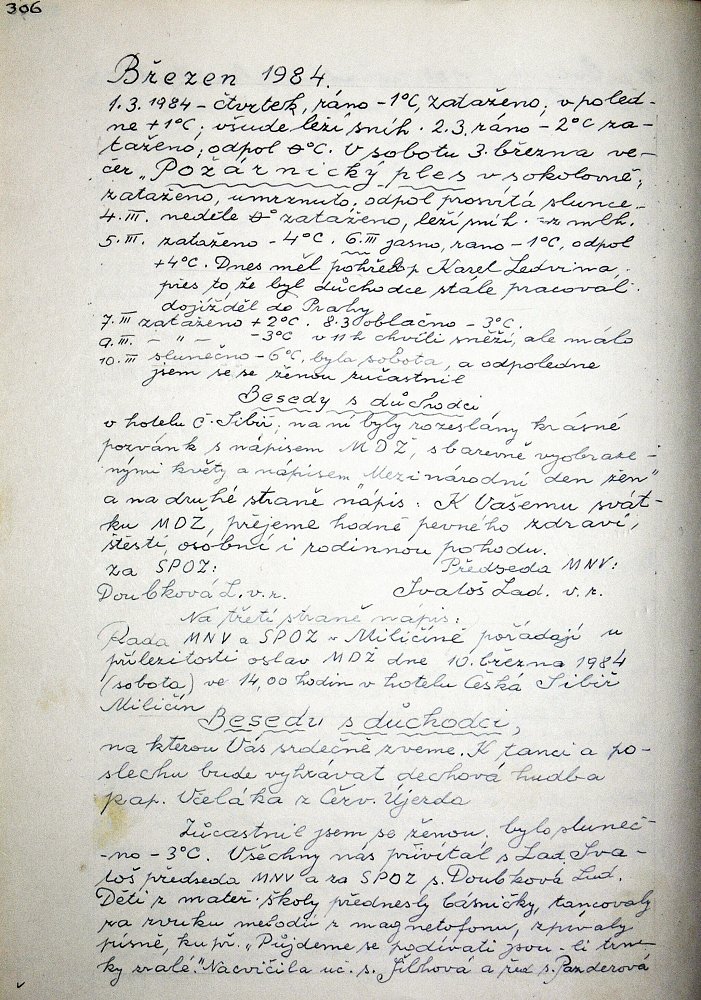 306
Březen 1984.
1.3.1984 – čtvrtek, ráno –1°C, zataženo, v poled-
ne +1°C; všude leží sníh. 2.3. ráno – 2°C za-
taženo, odpol 0°C. V sobotu 3. března ve-
čer „Požárnický ples v sokolovně,
zataženo, umrznuto, odpol prosvítá slunce.
4.III. neděle 0° zataženo, leží sníh. z mlh.
5.III. zataženo –4°C. 6.III jasno, ráno –1°C, odpol
+4°C. Dnes měl pohřeb p Karel Ledvina,
přes to, že byl důchodce stále pracoval.
dojížděl do Prahy
7.III zataženo +2°C. 8.3 oblačno –3°C.
9.III. – „ – –3°C v 11 h chvíli sněží, ale málo
10.III slunečno –6°C, byla sobota, a odpoledne
jsem se se ženou zučastnil
Besedy s důchodci
v hotelu Č. Sibiř, na ní byly rozeslány krásné
pozvánk s nápisem MDŽ, s barevně vyobraze-
nými květy a nápisem „Mezinárodní den žen"
a na druhé straně nápis. K Vašemu svát-
ku MDŽ, přejeme hodně pevného zdraví,
štěstí, osobní i rodinnou pohodu.
za SPOZ: Předseda MNV:
Doubková L. v.r. Svatoš Lad. v. r.
Na třetí straně nápis:
Rada MNV a SPOZ v Miličíně pořádají u
příležitosti oslav MDŽ dne 10. března 1984
(sobota) ve 14,00 hodin v hotelu Česká Sibiř
Miličín
Besedu s důchodci,
na kterou Vás srdečně zveme. K tanci a po-
slechu bude vyhrávat dechová hudba
kap. Včeláka z Červ. Újezda
Zůčastnil jsem se ženou, bylo sluneč-
-no – 3°C. Všechny nás přivítal s Lad Sva-
toš předseda MNV a za SPOZ s. Doubková Lud.
Děti z mateř. školy přednesly básničky, tancovaly
za zvuku melodií z magnetofonu, zpívaly
písně, ku př. „Půjdeme se podívati jsou-li trn-
ky zralé." Nacvičila uč. s. Šilhová a řed s. Panderová